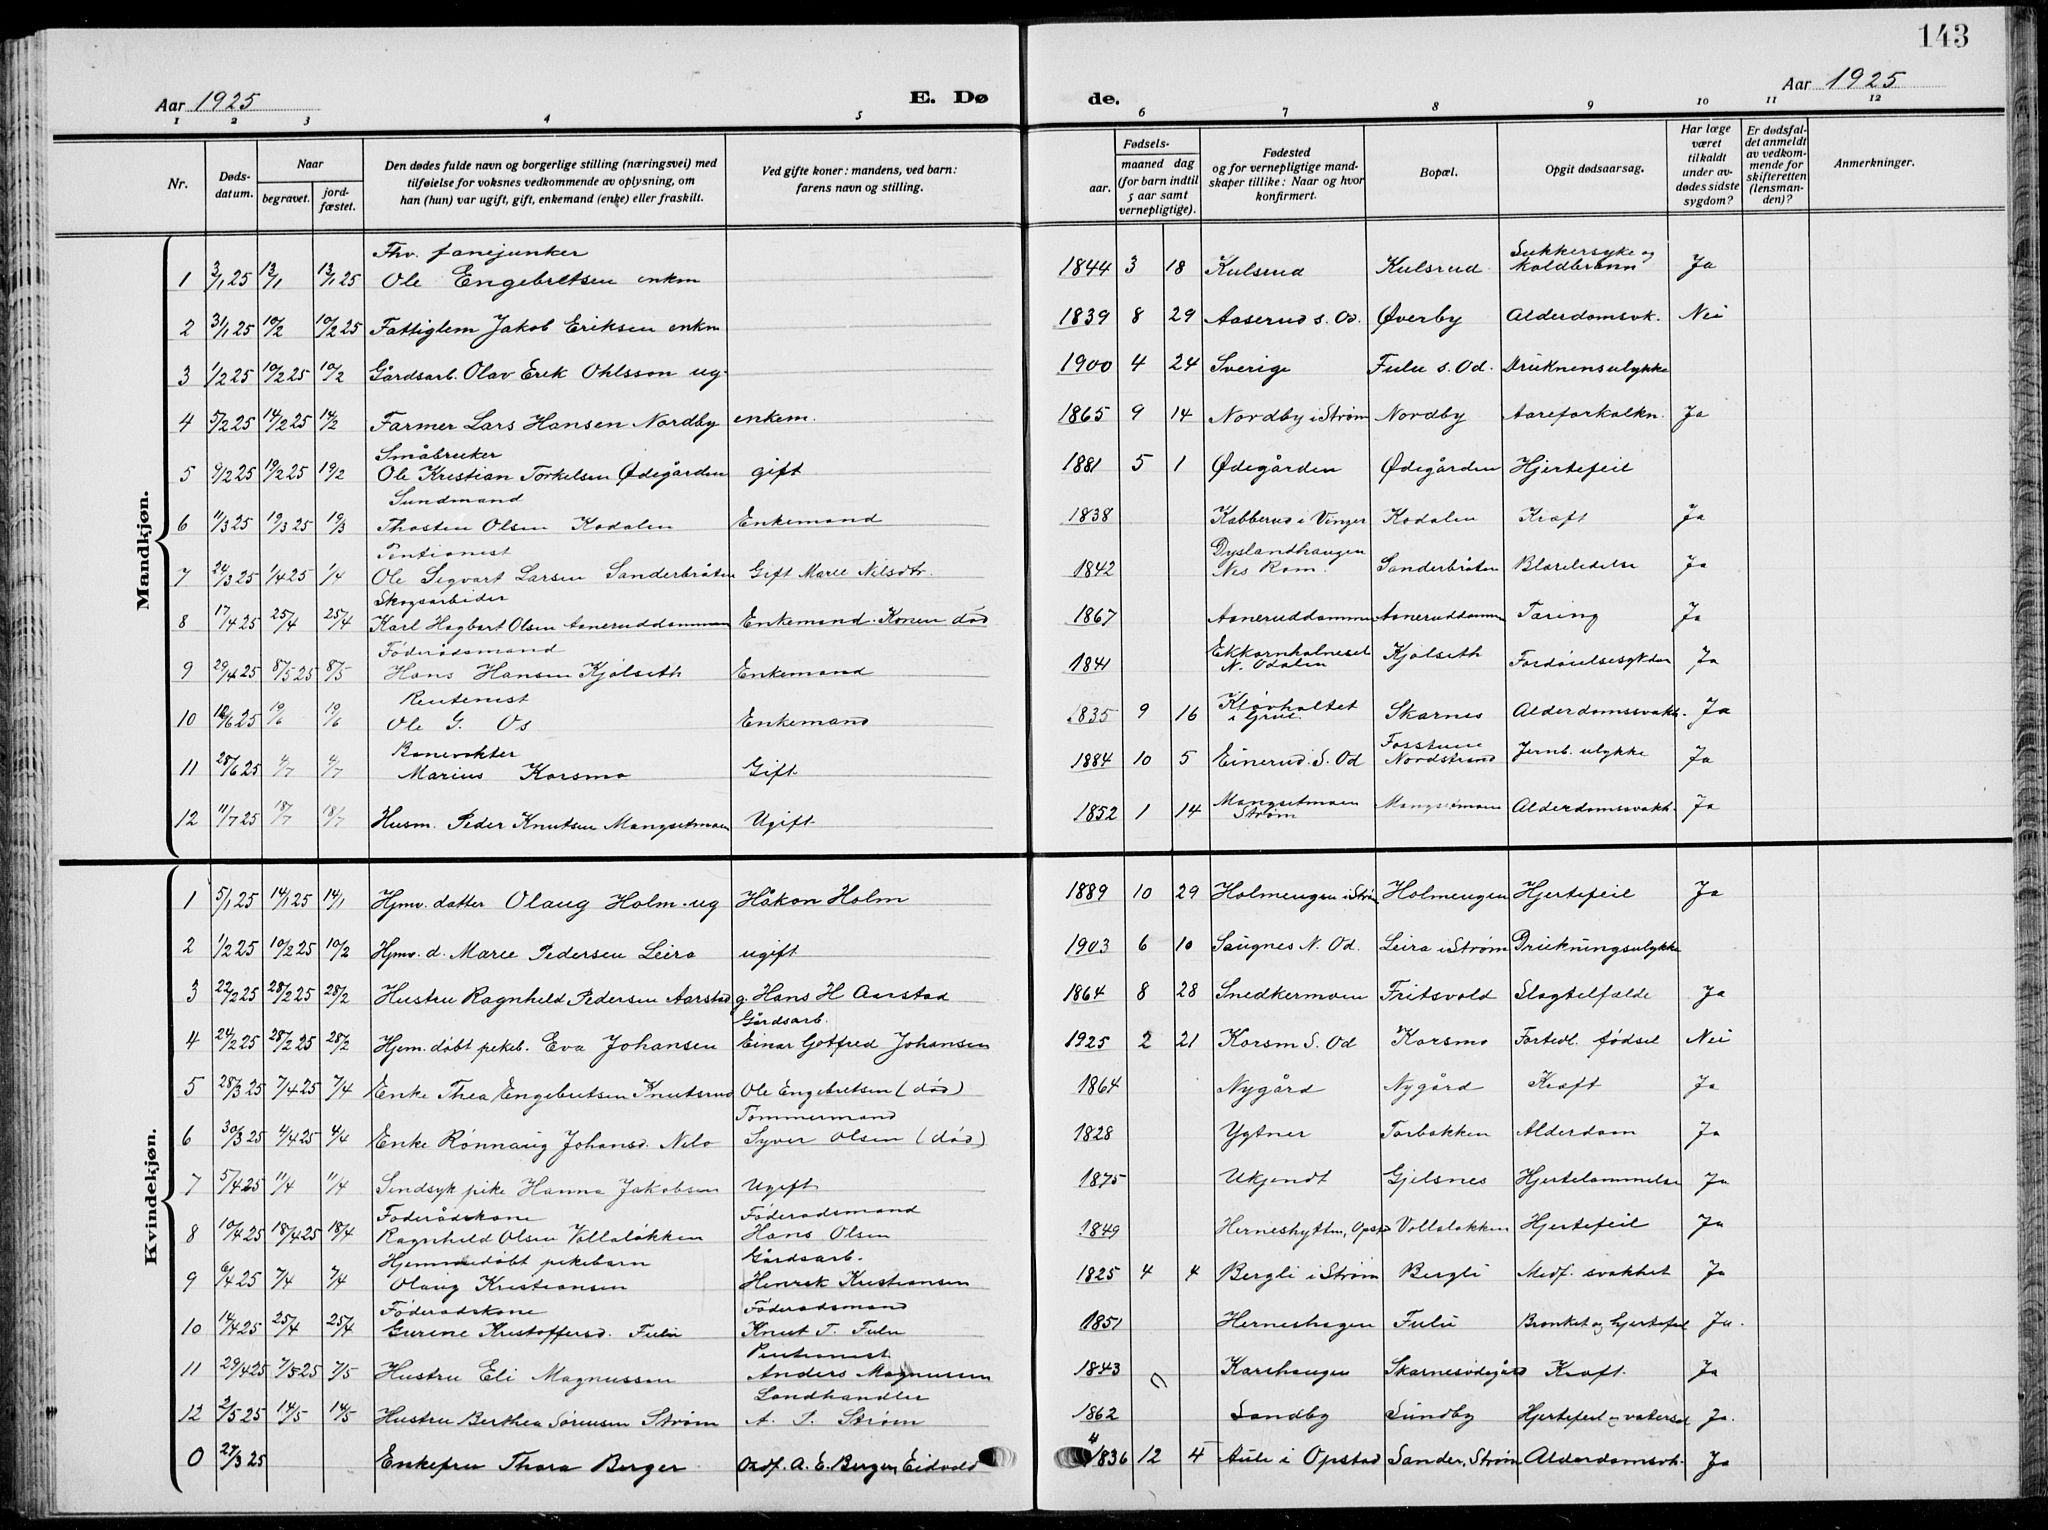 143
Aar 1925
E. Dø
de.
Aar 1925
1 2 3 4 5 6 7 8 9 10 11 12
Nr.
Døds-
datum.
Naar
begravet.
jord-
fæstet.
Den dødes fulde navn og borgerlige stilling (næringsvei) med
tilføielse for voksnes vedkommende av oplysning, om
han (hun) var ugift, gift, enkemand (enke) eller fraskilt.
Ved gifte koner: mandens, ved barn:
farens navn og stilling.
Fødsels-
aar.
maaned dag
(for barn indtil
5 aar samt
vernepligtige).
Fødested
og for vernepligtige mand-
skaper tillike: Naar og hvor
konfirmert.
Bopæl.
Opgit dødsaarsag.
Har læge
været
tilkaldt
under av-
dødes sidste
sygdom?
Er dødsfal-
det anmeldt
av vedkom-
mende for
skifteretten
(lensman-
den)?
Anmerkninger.
Mandkjøn.
Thv. fanejunker Sukkersyke og
1 3/1 25 13/1 13/1 25 Ole Engebretsen enkm 1844 3 18 Kulsrud Kulsrud koldbrann Ja
2 31/1 25 10/2 10/2 25 Fattiglem Jakob Eriksen enkm 1839 8 29 Aaserud s. Od. Øverby Alderdomsvk. Nei
3 1/2 25 10/2 25 10/2 Gårdsarb. Olav Erik Ohlsson ug. 1900 4 24 Sverige Fulu s. Od. Druknensulykke
4 5/2 25 14/2 25 14/2 Farmer Lars Hansen Nordby enkem. 1865 9 14 Nordby i Strøm Nordby Aareforkalkn. Ja
Småbruker
5 9/2 25 19/2 25 19/2 Ole Kristian Torkelsen Ødegården gift 1881 5 1 Ødegården Ødegården Hjertefeil
Sundmand
6 11/3 25 19/3 25 19/3 Thosten Olsen Kodalen Enkemand 1838 Kabberud i Vinger Kodalen Kræft Ja
Pentionist Dyslandhaugen
7 24/3 25 1/4 25 1/4 Ole Segvart Larsen Sanderbråten Gift Maree Nilsdtr. 1842 Nes Rom. Sanderbråten Blæreledelse Ja
Skogsarbeider
8 17/4 25 25/4 25/4 Karl Hagbart Olsen Asneruddammen Enkemand. Konen død 1867 Asneruddammen Asneruddammen Tæring Ja
Føderådsmand Ekkornholneset
9 29/4 25 8/5 25 8/5 Hans Hansen Kjølseth Enkemand 1841 N. Odalen Kjølseth Fordøielsesykdom Ja
Rentenist Kløvholtet
10 12/6 25 19/6 19/6 Ole G. Os Enkemand 1835 9 16 i Grue. Skarnes Alderdomssvakh. Ja
Banevokter Fosstune
11 28/6 25 4/7 4/7 Marius Korsmo Gift 1884 10 5 Einerud. S. Od Nordstrand Jernb. ulykke Ja
Mangsetmoen
12 11/7 25 18/7 18/7 Husm. Peder Knutsen Mangsetmoen Ugift 1852 1 14 Strøm Mangsetmoen Alderdomssvakh. Ja
Kvindekjøn.
1 5/1 25 14/1 25 14/1 Hjmv. datter Olaug Holm. ug Håkon Holm 1889 10 29 Holmengen i Strøm Holmengen Hjertefeil Ja
2 1/2 25 10/2 25 10/2 Hjmv. d. Maree Pedersen Leira ugift 1903 6 10 Saugnes N. Od. Leira i Strøm Drukningsulykke
3 22/2 25 28/2 25 28/2 Hustru Ragnheld Pedersen Aarstad g. Hans H Aarstad 1864 8 28 Snedkermoen Fritsvold Slagtelfælde Ja
Gårdsarb.
4 24/2 25 28/2 25 28/2 Hjem. døbt pikeb. Eva Johansen Einar Gotfred Johansen 1925 2 21 Korsm S. Od Korsmo Fortedl. fødsel Nei
5 28/3 25 7/4 25 7/4 Enke Thea Engebretsen Knutsrud Ole Engebretsen (død) 1864 Nygård Nygård Kræft Ja
Tømmermand
6 30/3 25 4/4 25 4/4 Enke Rønnaug Johansd. Nilo Syver Olsen (død) 1828 Ygtner Torbakken Alderdom Ja
7 5/4 25 11/4 11/4 Sindsyk pike Hanna Jakobsen Ugift 1875 Ukjendt Gjelsnes Hjertelammelse Ja
Føderådskone Føderadsmand
8 10/4 25 18/4 25 18/4 Ragnheld Olsen Vollaløkken Hans Olsen 1849 Herneshytten, Opstad Vollaløkken Hjertefeil Ja
Hjemmedøbt pikebarn Gårdsarb.
9 6/4 25 7/4 7/4 Olaug Kristiansen Henrik Kristiansen 1825 4 4 Bergli i Strøm Bergli Medf. svakhet Ja
Føderadskone Føderadsmand
10 14/4 25 25/4 25/4 Gurine Kristoffersd. Fulu Knut T. Fulu 1851 Herneshagen Fulu Bronket og hjertefeil Ja.
Pentionist
11 29/4 25 7/5 25 7/5 Hustru Eli Magnussen Anders Magnussen 1843 Karshaugen Skarnesødegård Kræft. Ja
Landhandler
12 2/5 25 14/5 14/5 Hustru Berthea Sørensen Strøm A. P. Strøm 1862 Sandby Sundby Hjertefeil og vatersot Ja.
0 27/3 25 Enkefru Thora Berger Ordf. A. E. Berger, Eidvold 1836 12 4 Aule i Opstad Sander, Strøm Alderdomsvk. Ja